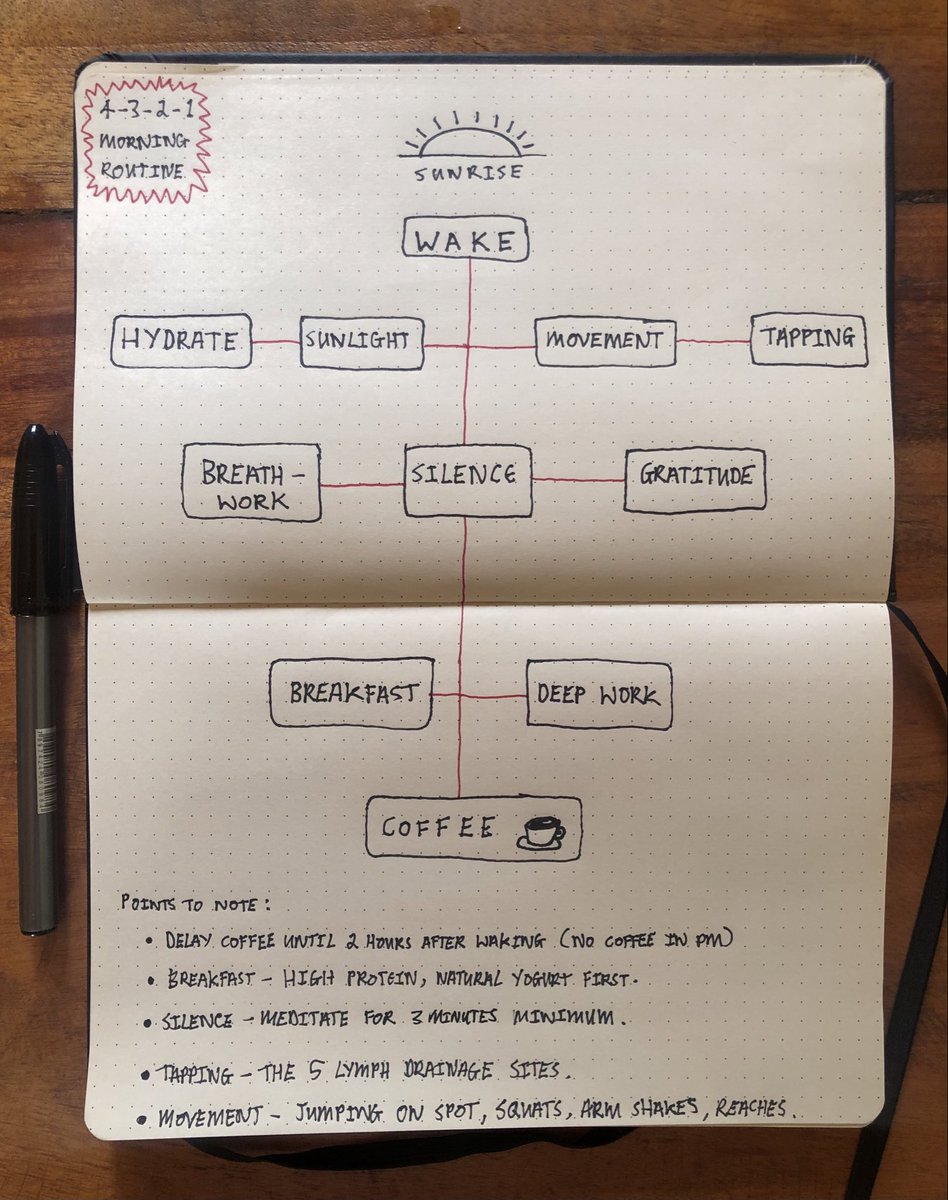 4-3-2-1
MORNING
ROUTINE
SUNRISE
WAKE
HYDRATE
SUNLIGHT
MOVEMENT
TAPPING
BREATH-
WORK
SILENCE
GRATITUDE
BREAKFAST
DEEP WORK
COFFEE
POINTS TO NOTE:
• DELAY COFFEE UNTIL 2 HOURS AFTER WAKING (NO COFFEE IN PM)
• BREAKFAST - HIGH PROTEIN, NATURAL YOGURT FIRST.
• SILENCE - MEDITATE FOR 3 MINUTES MINIMUM.
• TAPPING - THE 5 LYMPH DRAINAGE SITES.
• MOVEMENT - JUMPING ON SPOT, SQUATS, ARM SHAKES, REACHES.